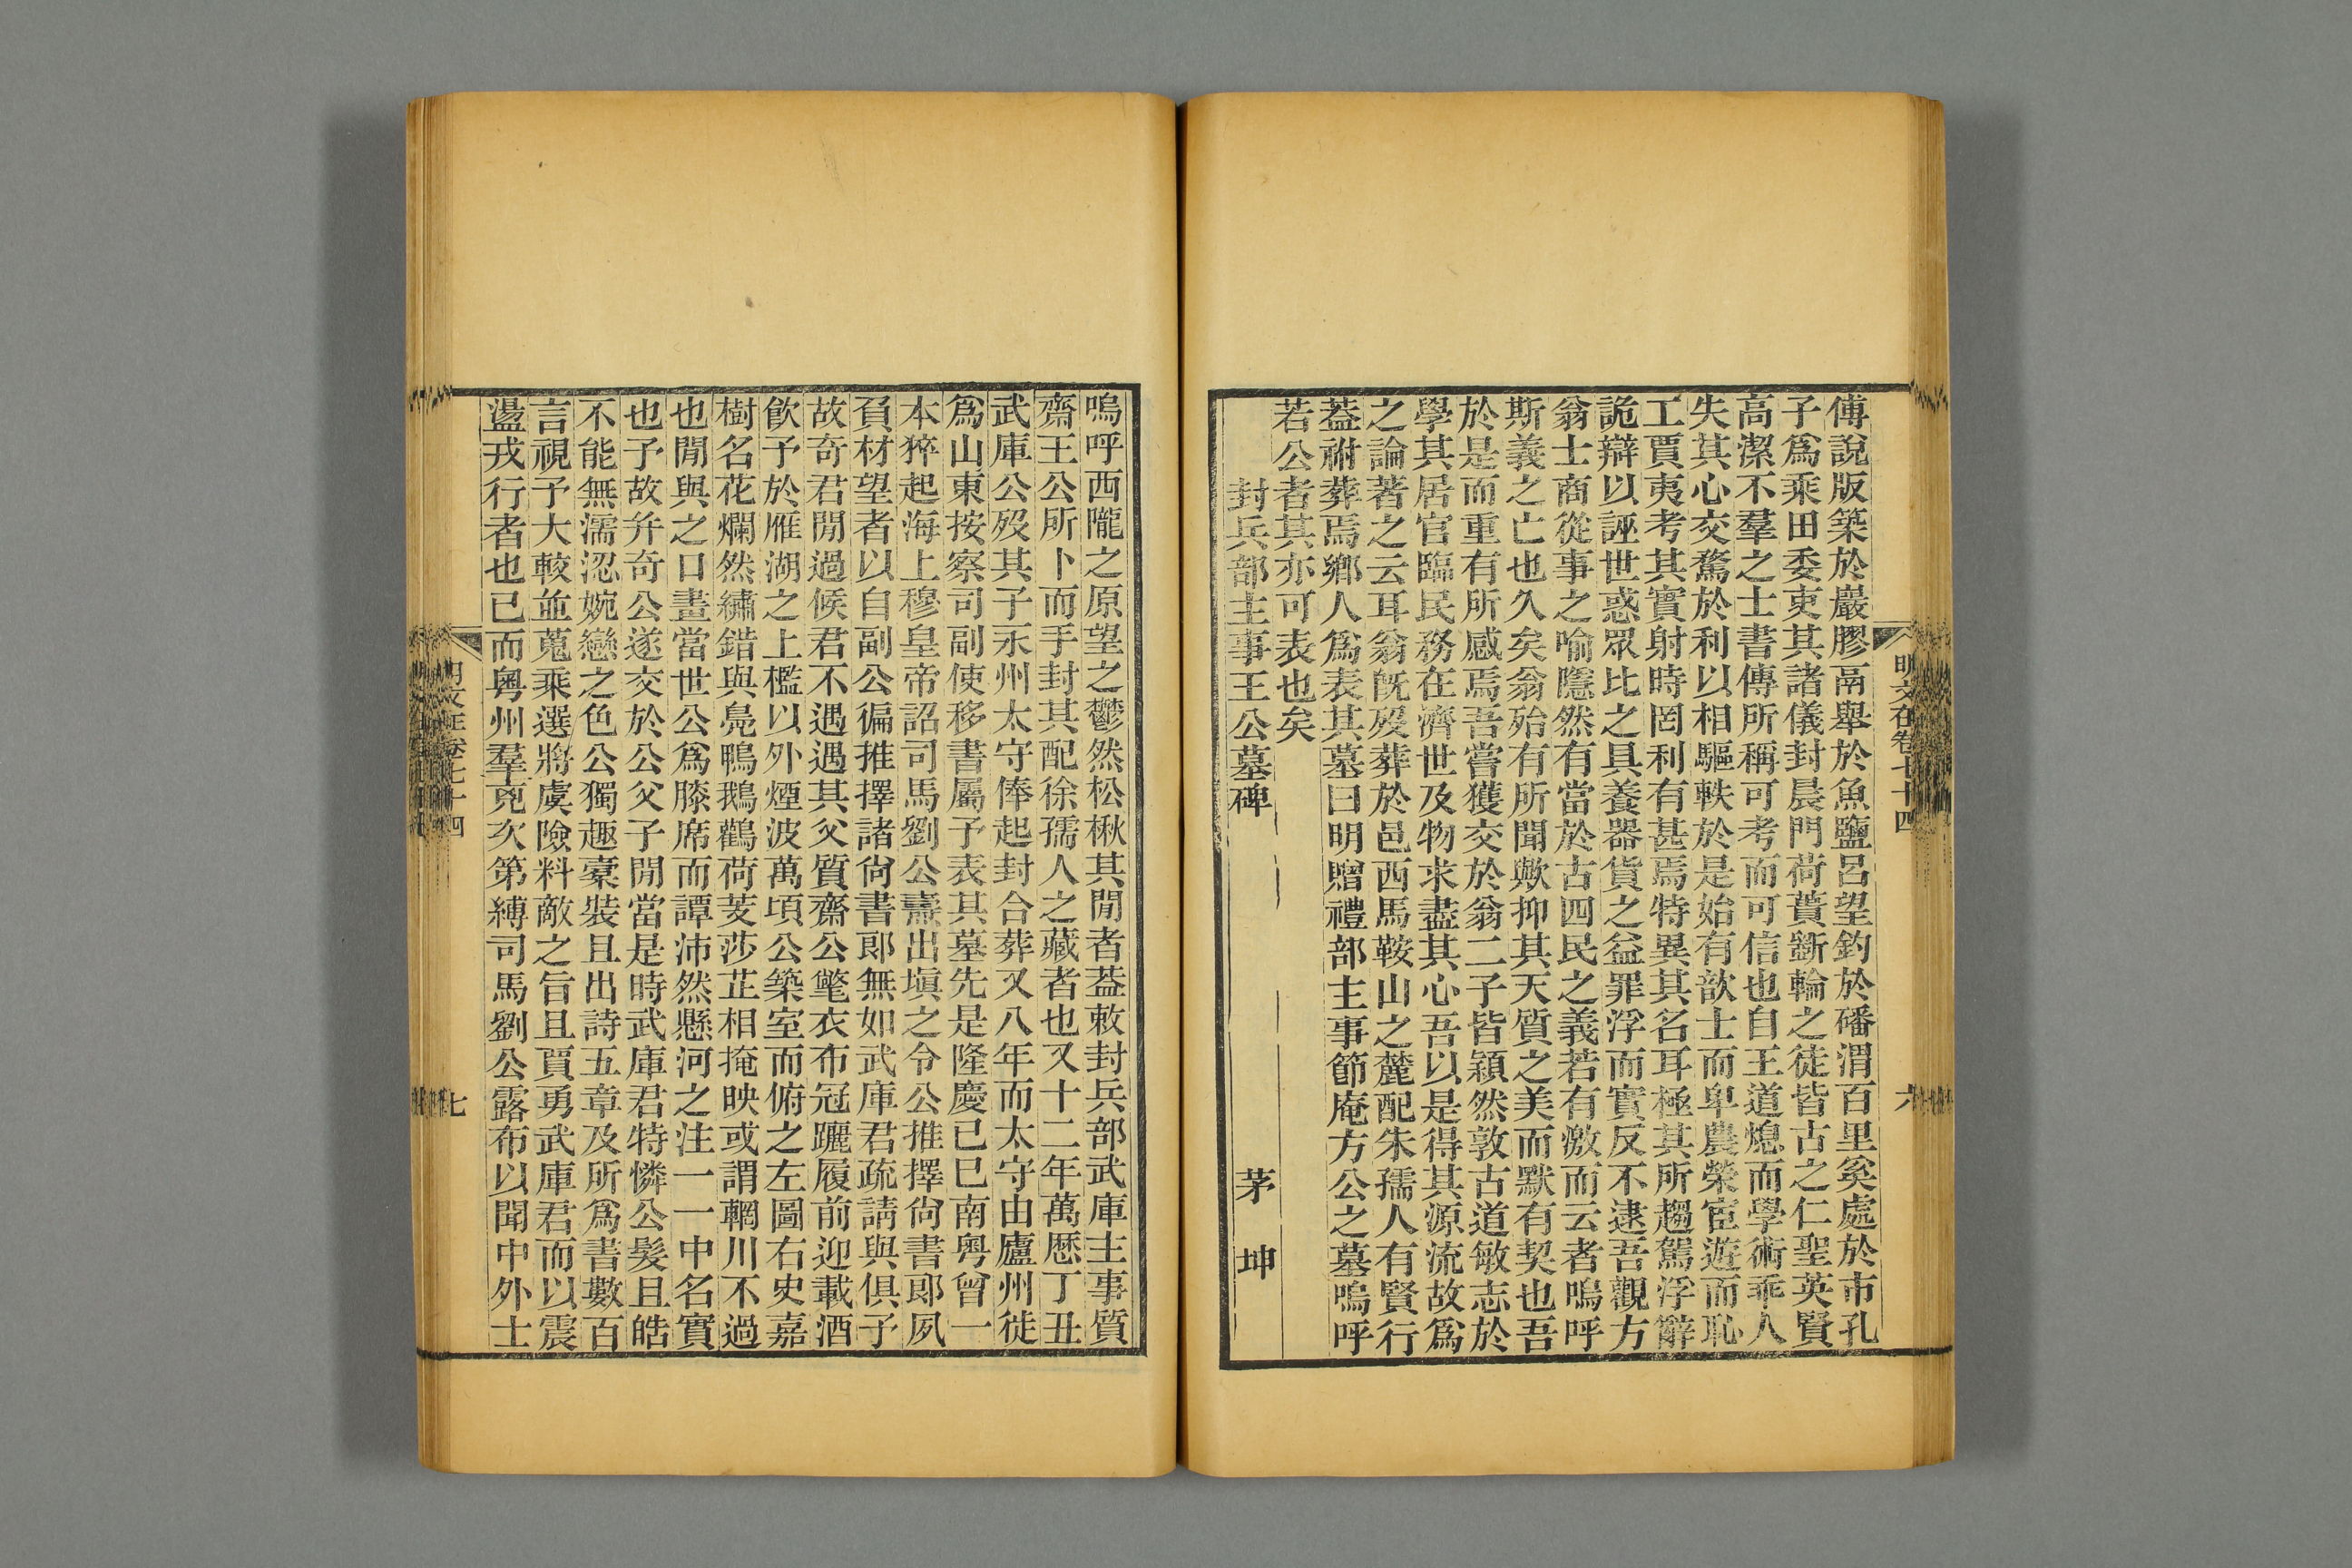 傅說版築於嚴膠鬲舉於魚鹽呂望釣於磻渭百里奚處於市孔
子爲乘田委吏其諸儀封晨門荷蕢斲輪之徒皆古之仁聖英賢
高潔不羣之士書傳所稱可考而可信也自王道熄而學術乖人
失其心交騖於利以相驅軼於是始有歆士而卑農榮宦遊而恥
工賈夷考其實射時罔利有甚焉特異其名耳極其所趨駕浮辭
詭辯以誣世惑眾比之具養器貨之益罪浮而實反不逮吾觀方
翁士商從事之喻隱然有當於古四民之義若有激而云者嗚呼
斯義之亡也久矣翁殆有所聞歟抑其天質之美而默有契也吾
於是而重有所感焉吾嘗獲交於翁二子皆穎然敦古道敏志於
學其居官臨民務在濟世及物求盡其心吾以是得其源流故爲
之論著之云耳翁旣歿葬於邑西馬鞍山之麓配朱孺人有賢行
葢祔葬焉鄉人爲表其墓曰明贈禮部主事節庵方公之墓嗚呼
若公者其亦可表也矣
封兵部主事王公墓碑 茅坤
明文在卷七十四 六
嗚呼西隴之原望之鬱然松楸其閒者葢敕封兵部武庫主事質
齋王公所卜而手封其配徐孺人之藏者也又十二年萬歷丁丑
武庫公歿其子永州太守俸起封合葬又八年而太守由廬州徙
爲山東按察司副使移書屬予表其墓先是隆慶己巳南粵曾一
本猝起海上穆皇帝詔司馬劉公燾出塡之令公推擇尙書郞夙
負材望者以自副公徧推擇諸尙書郞無如武庫君疏請與俱予
故奇君閒過候君不遇遇其父質齋公氅衣布冠躧履前迎載酒
飮予於雁湖之上檻以外煙波萬頃公築室而俯之左圖右史嘉
樹名花爛然繡錯與鳧鴨鵝鸛荷芰莎芷相掩映或謂輞川不過
也閒與之口畫當世公爲膝席而譚沛然懸河之注一一中名實
也予故幷奇公遂交於公父子閒當是時武庫君特憐公髮且皓
不能無濡忍婉戀之色公獨趣橐裝且出詩五章及所爲書數百
言視予大較並蒐乘選將虞險料敵之旨且賈勇武庫君而以震
盪戎行者也已而粵州羣兇次第縛司馬劉公露布以聞中外士
明文在卷七十四 七